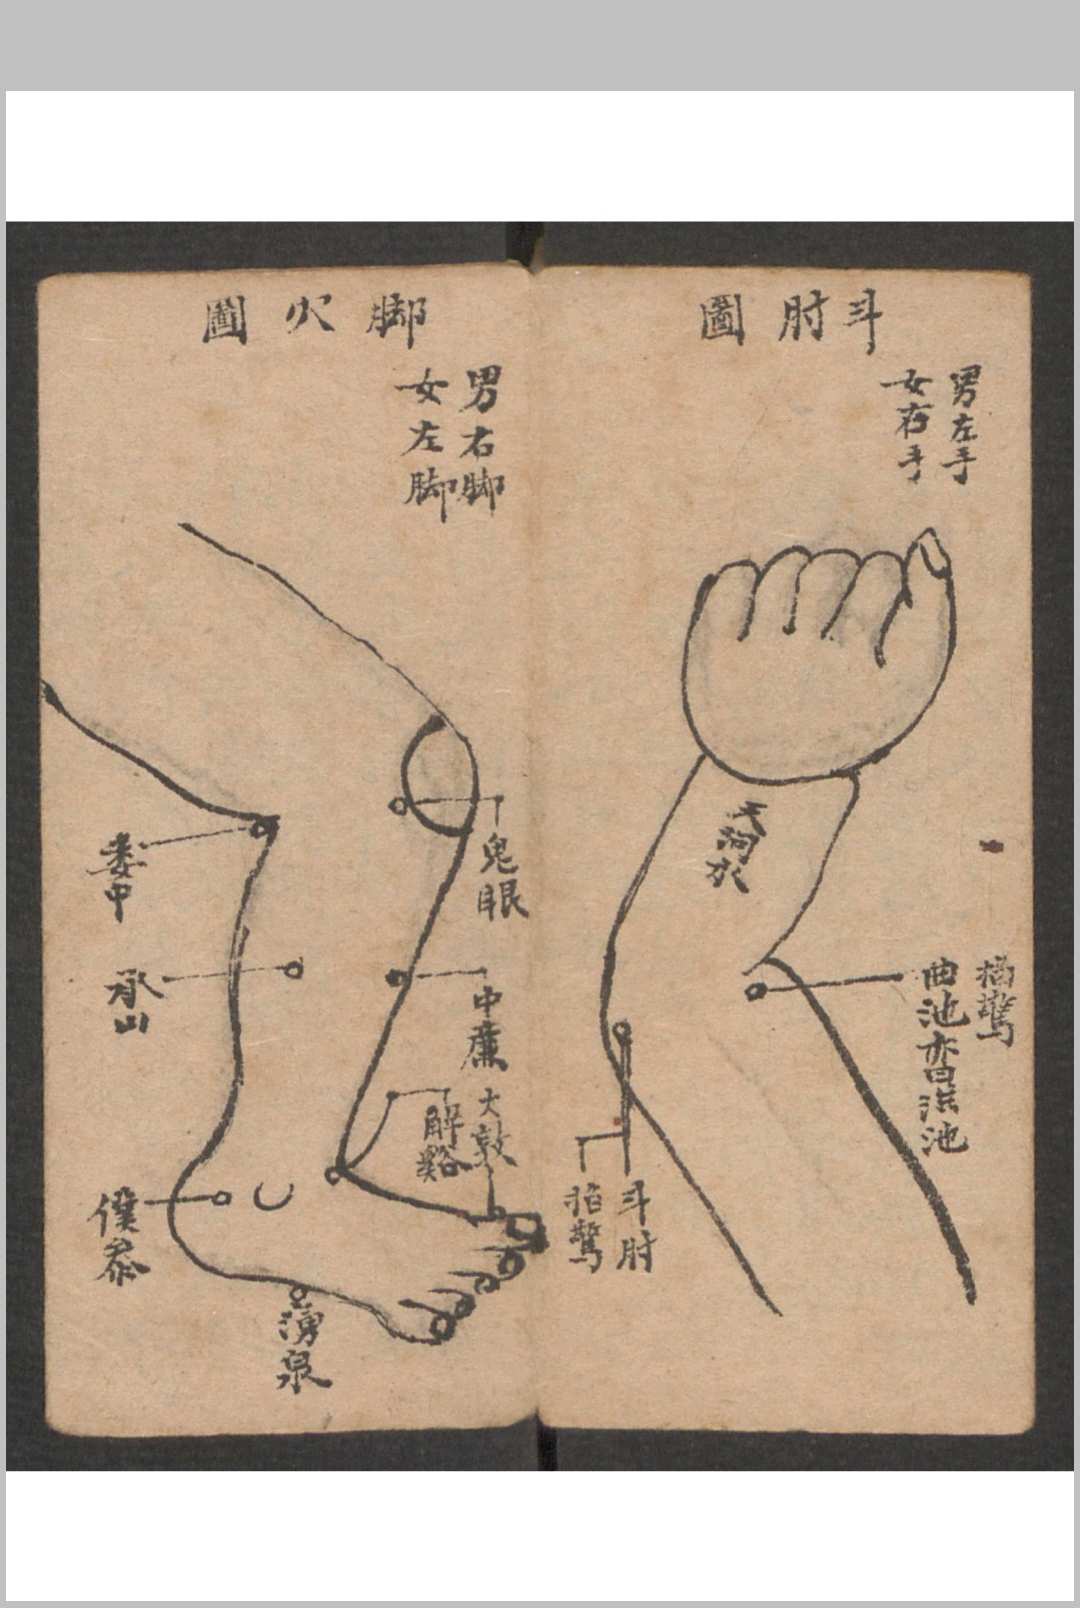 斗肘圖
男左手
女右手
天河水
搐驚
曲池
洪池
斗肘
掐驚
脚穴圖
男右脚
女左脚
鬼眼
中廉
大敦
解谿
委中
承山
僕參
湧泉